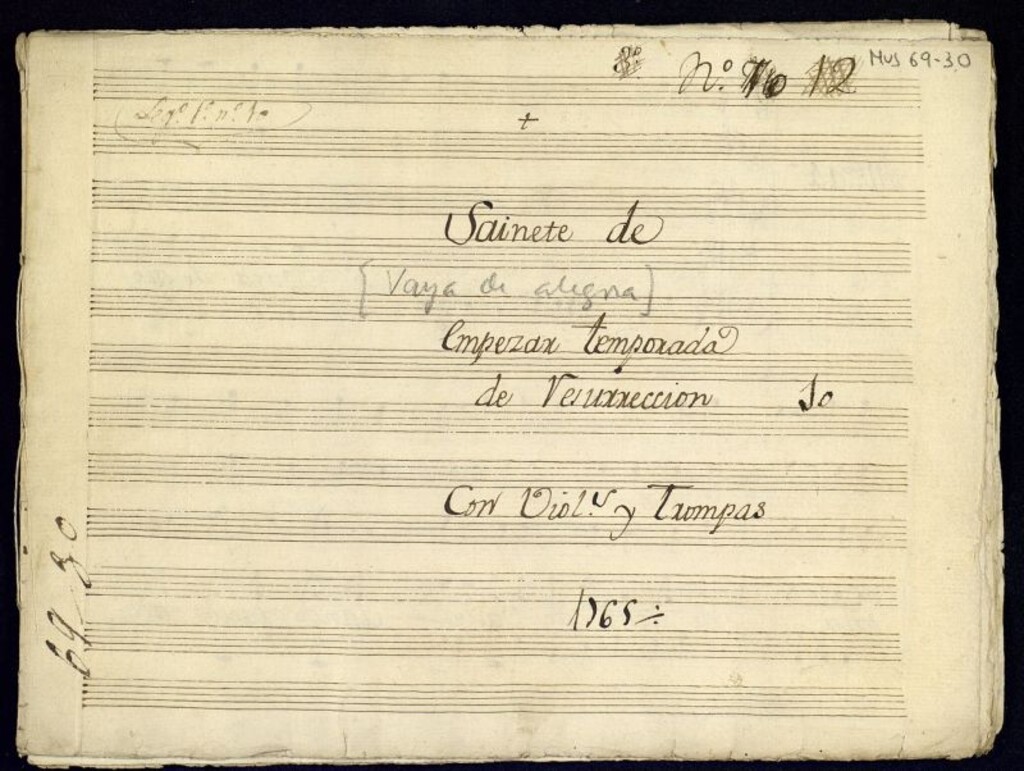 Nº. 12
Mus 69-30
Legº. 1º. nº. 10
+
Sainete de
[Vaya de alegria]
Empezar temporada
de Resurreccion 10
Con Viol.s y Trompas
1765÷
69-30